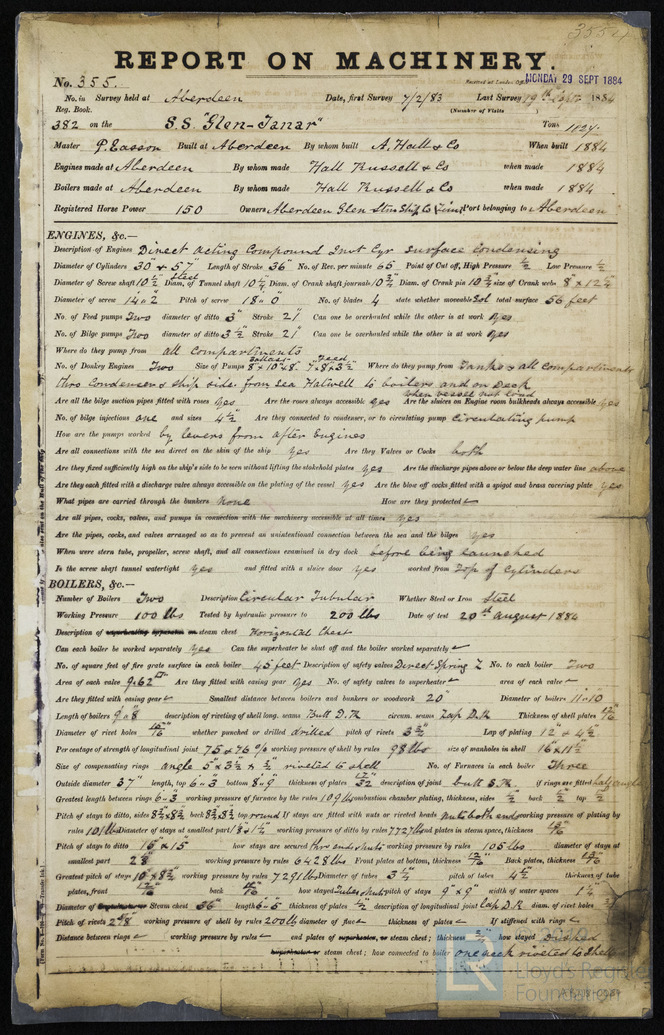 3554
REPORT ON MACHINERY.
No. 355. Received at London Office MONDAY 29 SEPT 1884
No. in Survey held at Aberdeen Date, first Survey 7/2/83 Last Survey 19th Sept 1884
Reg. Book. (Number of Visits
382 on the S.S. "Glen-Tanar" Tons 1824
Master P. Easson Built at Aberdeen By whom built A. Hall & Co When built 1884
Engines made at Aberdeen By whom made Hall Russell & Co when made 1884
Boilers made at Aberdeen By whom made Hall Russell & Co when made 1884
Registered Horse Power 150 Owners Aberdeen Glen Stm Ship Co Port belonging to Aberdeen
ENGINES, &c.—
Description of Engines Direct Acting Compound Invt Cyr Surface Condensing
Diameter of Cylinders 30 & 57 Length of Stroke 36" No. of Rev. per minute 65 Point of Cut off, High Pressure 1/2 Low Pressure 1/2
Diameter of Screw shaft 10 1/2 Diam. of Tunnel shaft 10 1/4 Diam. of Crank shaft journals 10 3/4 Diam. of Crank pin 10 3/4 size of Crank webs 8 x 12 1/4
Diameter of screw 14" 2 Pitch of screw 18" 0" No. of blades 4 state whether moveable Sol total surface 56 feet
No. of Feed pumps Two diameter of ditto 3" Stroke 21" Can one be overhauled while the other is at work yes
No. of Bilge pumps Two diameter of ditto 3 1/2 Stroke 21" Can one be overhauled while the other is at work yes
Where do they pump from all compartments
No. of Donkey Engines Two Size of Pumps Ballast 8 x 10 x 8. Feed 7 x 8 x 3 1/2 Where do they pump from Tanks & all compartments
Thro Condensers & Ship side. from Sea Hotwell to boilers and on Deck
when vessel not load
Are all the bilge suction pipes fitted with roses yes. Are the roses always accessible yes Are the sluices on Engine room bulkheads always accessible yes
No. of bilge injections one and sizes 4 1/2 Are they connected to condenser, or to circulating pump circulating pump
How are the pumps worked by levers from after Engines
Are all connections with the sea direct on the skin of the ship yes Are they Valves or Cocks both
Are they fixed sufficiently high on the ship's side to be seen without lifting the stokehold plates yes Are the discharge pipes above or below the deep water line above
Are they each fitted with a discharge valve always accessible on the plating of the vessel yes Are the blow off cocks fitted with a spigot and brass covering plate yes
What pipes are carried through the bunkers None How are they protected
Are all pipes, cocks, valves, and pumps in connection with the machinery accessible at all times yes
Are the pipes, cocks, and valves arranged so as to prevent an unintentional connection between the sea and the bilges yes
When were stern tube, propeller, screw shaft, and all connections examined in dry dock before being launched
Is the screw shaft tunnel watertight yes and fitted with a sluice door yes worked from Top of Cylinders
BOILERS, &c.—
Number of Boilers Two Description Circular Tubular Whether Steel or Iron Steel
Working Pressure 100 lbs Tested by hydraulic pressure to 200 lbs Date of test 20th August 1884
Description of superheating apparatus or steam chest Horizontal Chest
Can each boiler be worked separately yes Can the superheater be shut off and the boiler worked separately
No. of square feet of fire grate surface in each boiler 45 feet Description of safety valves Direct Spring No. to each boiler Two
Area of each valve 9.62 Are they fitted with easing gear yes No. of safety valves to superheater area of each valve
Are they fitted with easing gear Smallest distance between boilers and bunkers or woodwork 20" Diameter of boilers 11" 10
Length of boilers 9" 8 description of riveting of shell long. seams Butt D.R circum. seams Lap D.R Thickness of shell plates
Diameter of rivet holes 15/16 whether punched or drilled drilled pitch of rivets 3 1/2 Lap of plating 12 & 4 1/2
Per centage of strength of longitudinal joint 75 & 76 % working pressure of shell by rules 98 lbs size of manholes in shell 16 x 11 1/2
Size of compensating rings angle 5 x 3 1/2 x 1/2 riveted to shell No. of Furnaces in each boiler Three
Outside diameter 37" length, top 6" 3 bottom 8" 9" thickness of plates 17/32 description of joint butt S.R. if rings are fitted
Greatest length between rings 6" 3 working pressure of furnace by the rules 109 lbs combustion chamber plating, thickness, sides 1/2 back 1/2 top 1/2
Pitch of stays to ditto, sides 8 3/4 x 8 3/4 back 8 3/4 x 8 3/4 top round If stays are fitted with nuts or riveted heads Nuts both ends working pressure of plating by
rules 101 lbs Diameter of stays at smallest part 1 1/2 working pressure of ditto by rules 7727 lbs end plates in steam space, thickness
Pitch of stays to ditto 16 x 15 how stays are secured thro ends nuts working pressure by rules 105 lbs diameter of stays at
smallest part 2" working pressure by rules 6428 lbs Front plates at bottom, thickness Back plates, thickness
Greatest pitch of stays 10 x 8 3/4 working pressure by rules 7291 lbs Diameter of tubes 3 1/4 pitch of tubes 4 1/2 thickness of tube
plates, front back how stayed Tubes & nuts pitch of stays 9" x 9" width of water spaces 1 1/4
Diameter of Superheater or Steam chest 36" length 6" 5 thickness of plates 1/2 description of longitudinal joint Lap D.R diam. of rivet holes
Pitch of rivets working pressure of shell by rules 200 lbs diameter of flue thickness of plates If stiffened with rings
Distance between rings working pressure by rules end plates of superheater, or steam chest; thickness how stayed Dished
superheater or steam chest; how connected to boiler one neck riveted to Shell
© 2019
LR
Lloyd's Register
Foundation